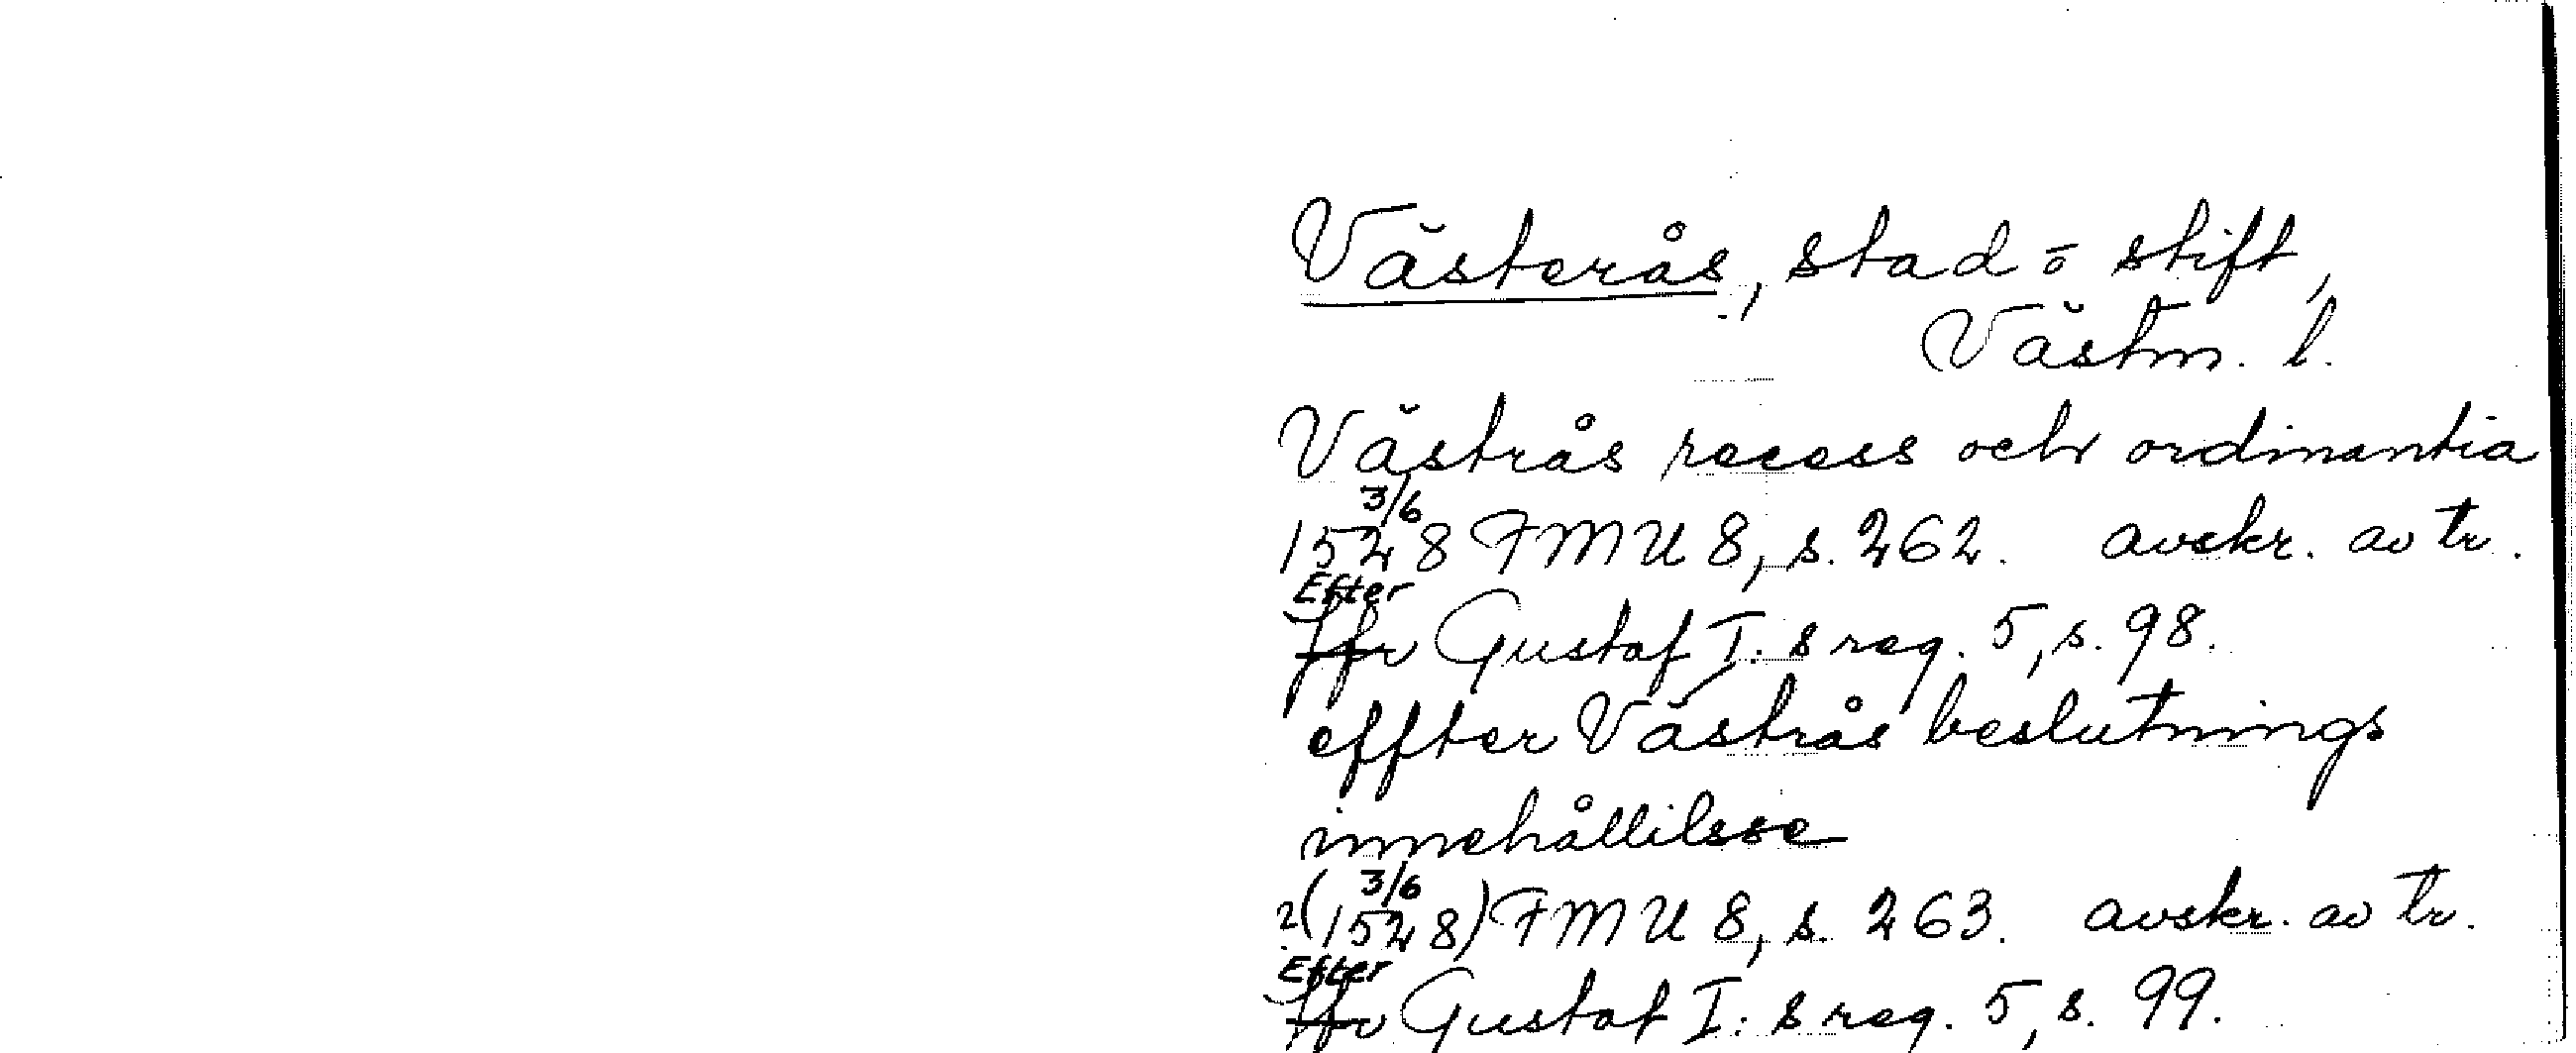 Västerås, stad o stift,
Västm. l.
Västrås recess och ordinantia
3/6
1528 FMU 8, s. 262. avskr. av tr.
Efter
Jfr Gustaf I:s reg. 5, s. 98.
effter Västrås beslutnings
innehållilsse
3/6
?(1528) FMU 8, s. 263. avskr. av tr.
Efter
Jfr Gustaf I:s reg. 5, s. 99.